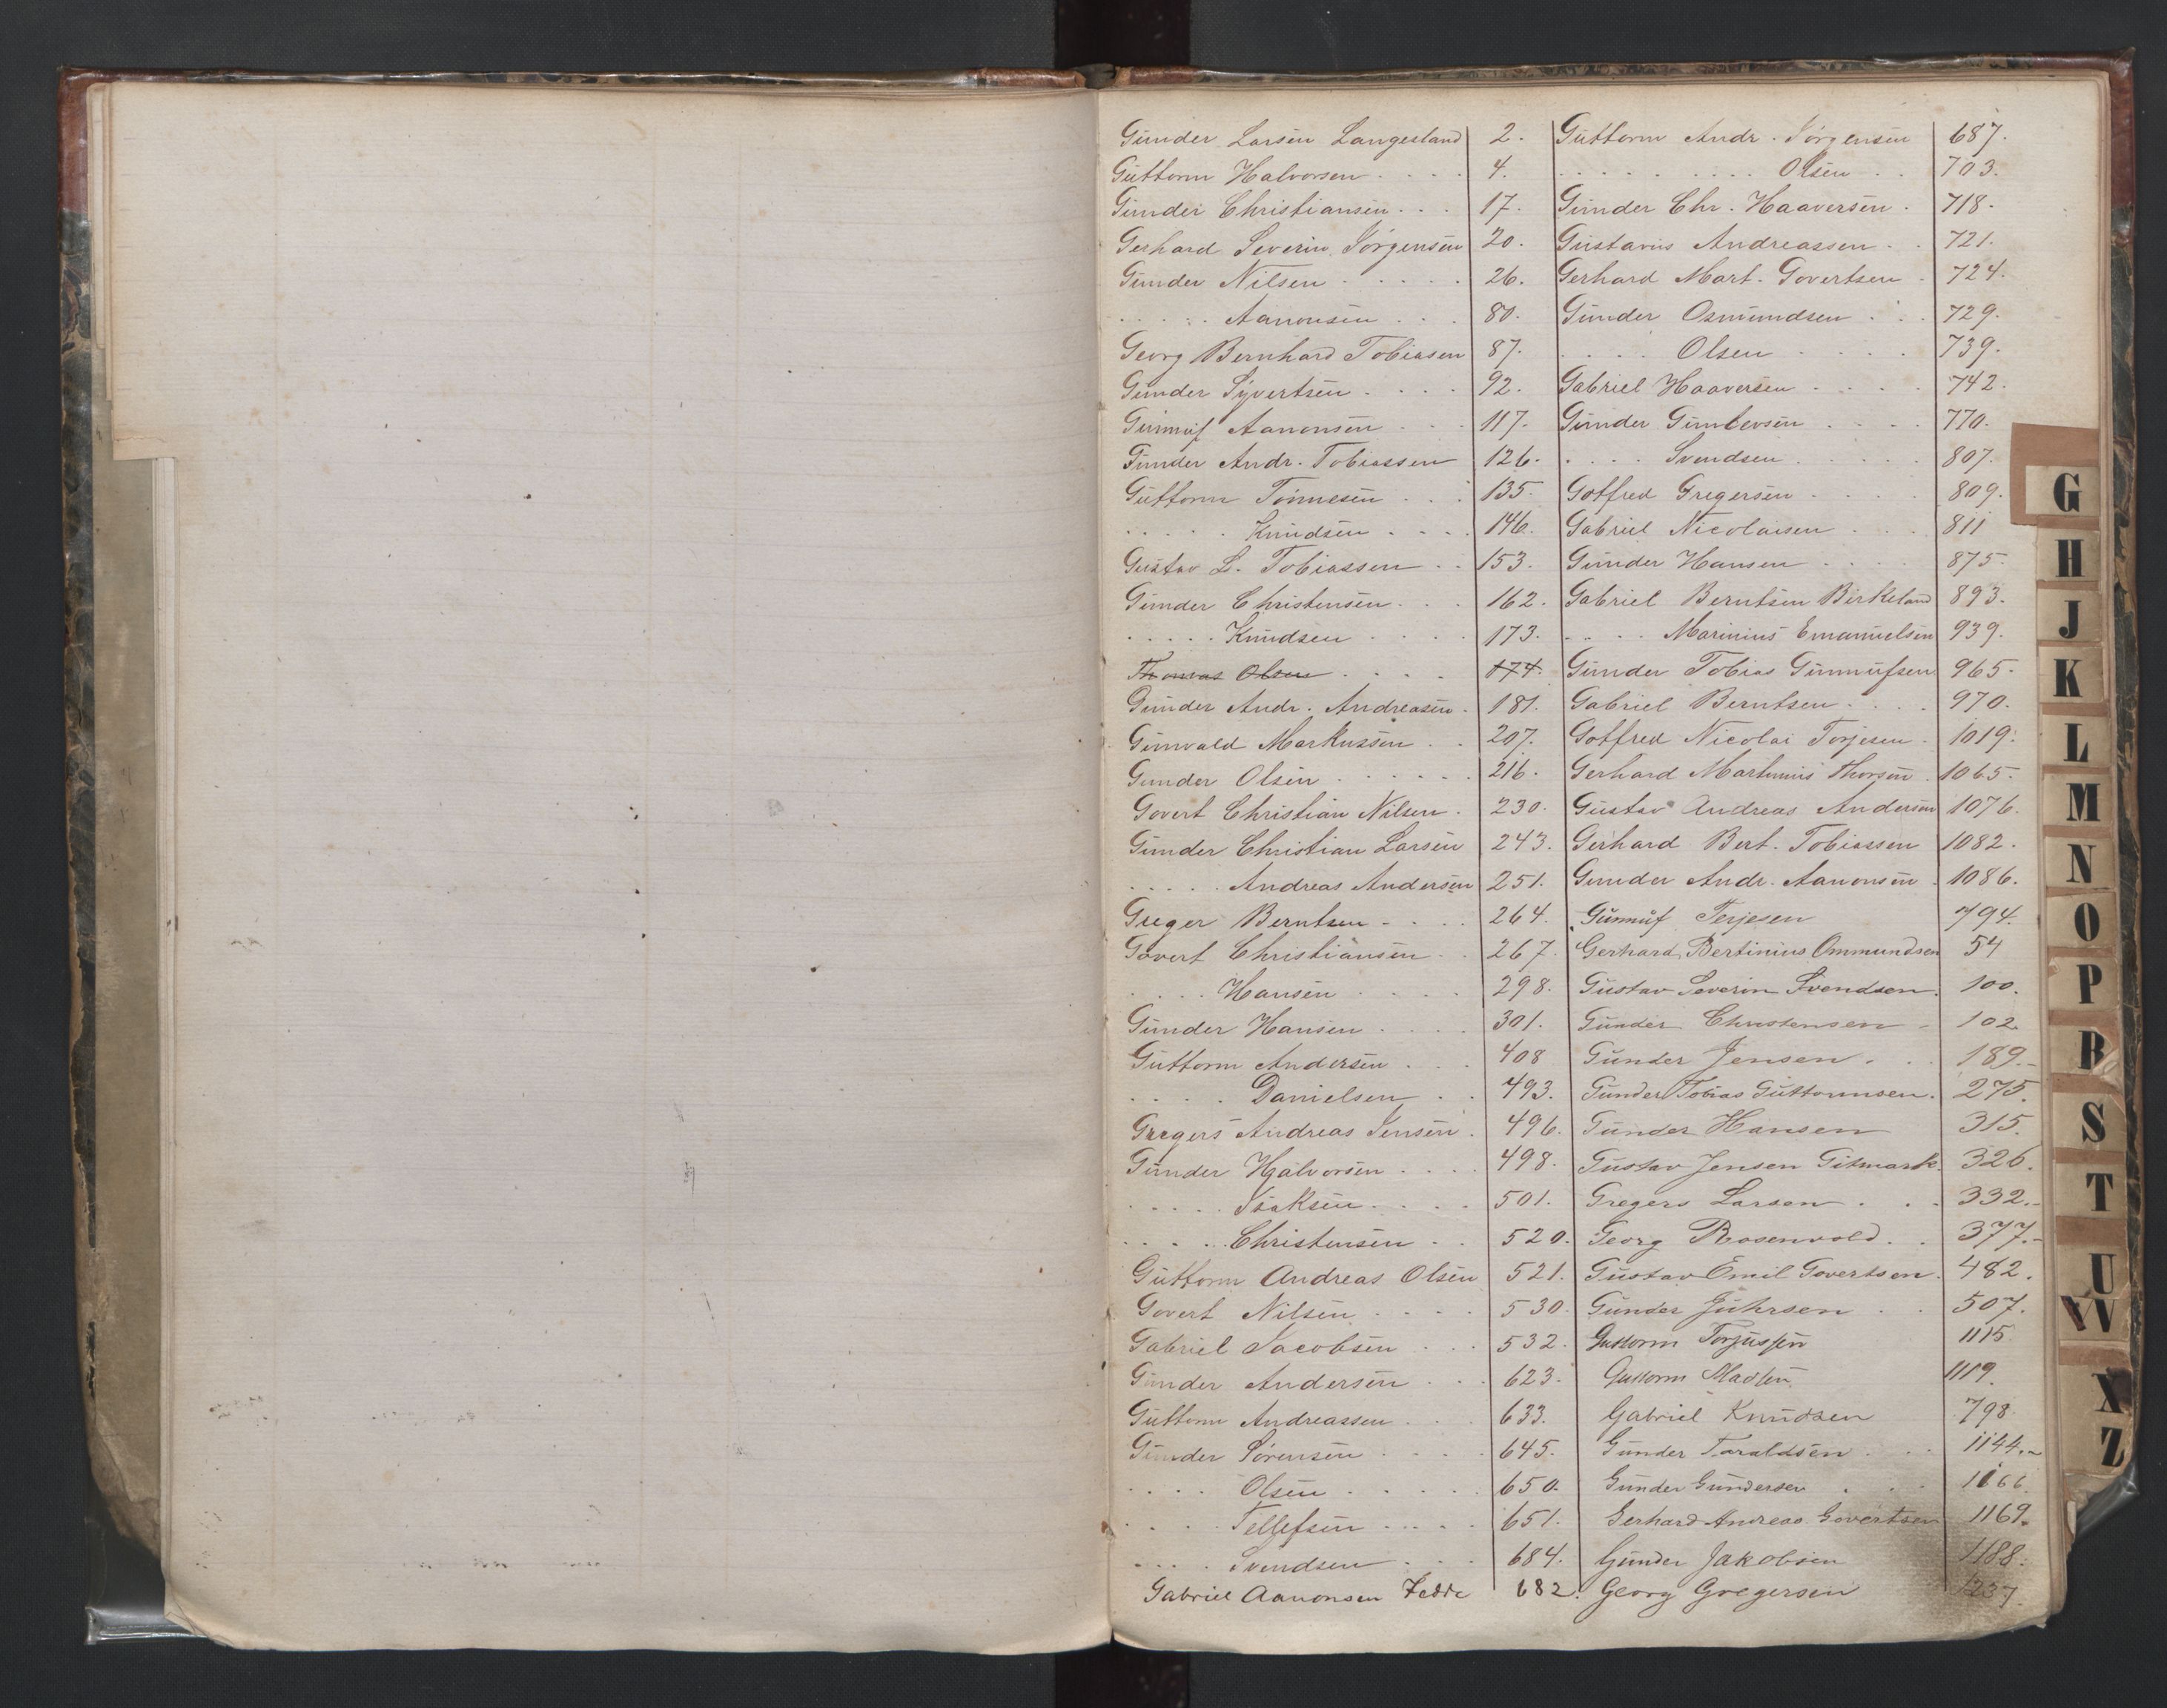 Gunder Larsen Langesland 2.
Guttorm Halvorsen . . . . 4.
Gunder Christiansen . . . 17.
Gerhard Severin Jörgensen 20.
Gunder Nilsen . . . . . 26.
. . . . . Aanonsen . . . 80.
Georg Bernhard Tobiasen 87.
Gunder Syvertsen . . . . 92.
Gunnuf Aanonsen . . . 117.
Gunder Andr. Tobiassen 126.
Guttorm Tönnesen . . . 135.
. . . . . Knudsen . . . . 146.
Gustav L. Tobiassen . . 153.
Gunder Christensen . . . 162.
. . . . . Knudsen . . . . 173.
Thomas Olsen . . . . 174.
Gunder Andr. Andreasen . 181.
Gunvald Markussen . . 207.
Gunder Olsen . . . . . . 216.
Govert Christian Nilsen . 230.
Gunder Christian Larsen 243.
. . . . . Andreas Andersen 251.
Greger Berntsen - . . . 264.
Govert Christiansen . . 267.
. . . . Hansen . . . . 298.
Gunder Hansen . . . . 301.
Guttorm Andersen . . . 408
. . . . . Danielsen . . 493.
Gregers Andreas Jensen . 496.
Gunder Halvorsen . . . . 498.
. . . . . Isaksen . . . . 501.
. . . . . Christensen . . 520.
Guttorm Andreas Olsen 521.
Govert Nilsen . . . . 530.
Gabriel Jacobsen . . . 532.
Gunder Andersen . . . 623.
Guttorm Andreassen . . . 633.
Gunder Sörensen . . . . 645.
. . . . Olsen . . . . . . 650.
. . . . Tellefsen . . . . . 651.
. . . . Svendsen . . . 684.
Gabriel Aanonsen Fedde 682.
Guttorm Andr. Jörgensen 687.
. . . . . . . . . . Olsen . . 703.
Gunder Chr. Haaversen . 718.
Gustavus Andreassen . . 721.
Gerhard Mart. Govertsen . 724.
Gunder Osmundsen . . . 729.
. . . . . Olsen . . . . . 739.
Gabriel Haaversen . . . . 742.
Gunder Gundersen . . . . 770.
. . . . Svendsen . . . . . 807.
Gotfred Gregersen . . . . 809.
Gabriel Nicolaisen . . . 811
Gunder Hansen . . . . 875.
Gabriel Berntsen Birkeland 893.
. . . . Marinius Emanuelsen 939.
Gunder Tobias Gunnufsen 965.
Gabriel Berntsen . . . . 970.
Gotfred Nicolai Torjesen . 1019.
Gerhard Martinius Thorsen . 1065.
Gustav Andreas Andersen 1076.
Gerhard Bert. Tobiassen 1082.
Gunder Andr. Aanonsen . 1086.
Gunnuf Terjesen 794.
Gerhard Bertinius Ommundsen 54
Gustav Severin Svendsen. 100.
Gunder Christensen - 102.
Gunder Jensen . . . 189.-
Gunder Tobias Guttormsen. 275.
Gunder Hansen 315.
Gustav Jensen Gitmark. 326.
Gregers Larsen . . . 332.-
Georg Rosenvold. . . 377.-
Gustav Emil Govertsen. 482.
Gunder Guhrsen . . . 507.
Guttorm Torjussen 1115.
Guttorm Madsen 1119.
Gabriel Knudsen 798.
Gunder Taraldsen . . . 1144.-
Gunder Gundersen . . . 1166
Gerhard Andreas Govertsen 1169.
Gunder Jakobsen 1188.
Georg Gregersen 1237.
G
H
J
K
L
M
N
O
P
R
S
T
U
W
X
Z